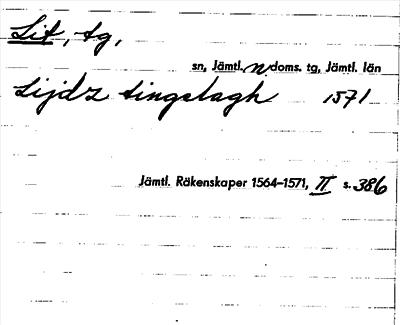 Lit, tg,
sn, Jämtl. n doms. tg, Jämtl. län
Lijdz tingslagh 1571
Jämtl. Räkenskaper 1564-1571, II s. 386